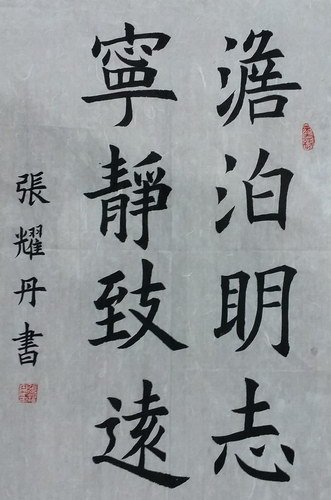 澹泊明志
寧靜致遠
張耀丹書